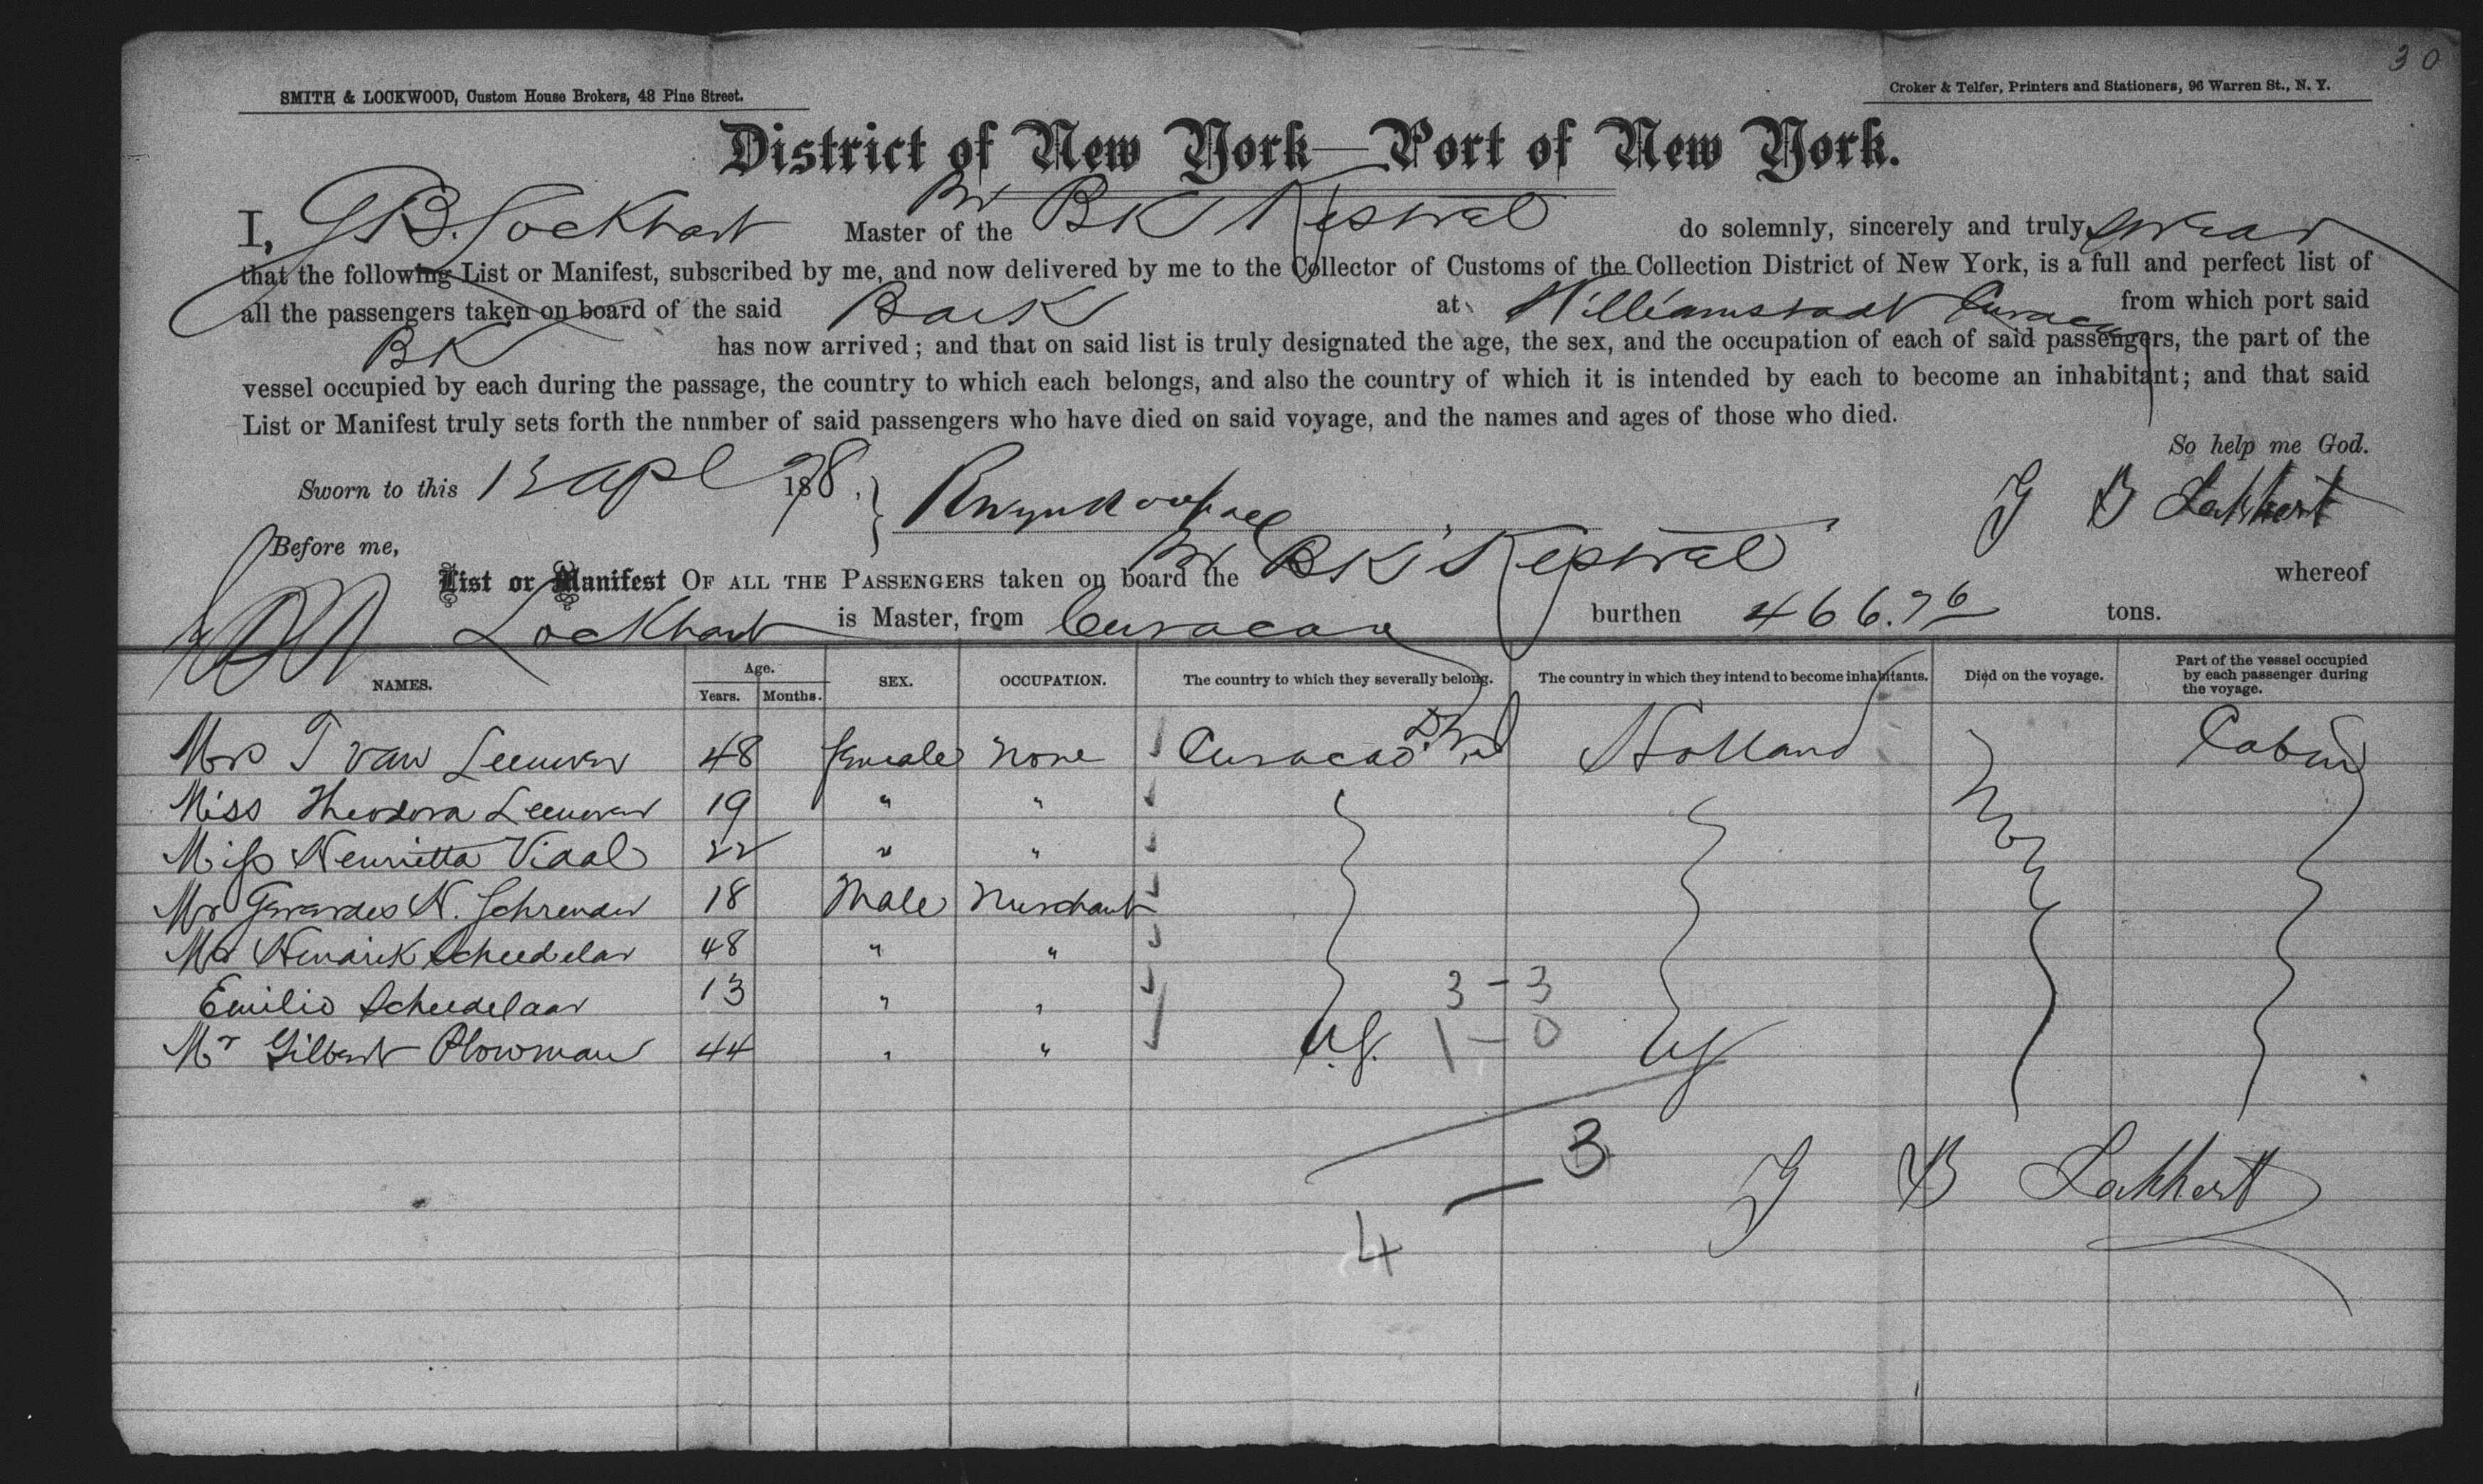 30
SMITH & LOCKWOOD, Custom House Brokers, 48 Pine Street.
Croker & Telfer, Printers and Stationers, 96 Warren St., N. Y.
District of New York—Port of New York.
I, G B. Lockhart Master of the Br BK Kestrel do solemnly, sincerely and truly swear
that the following List or Manifest, subscribed by me, and now delivered by me to the Collector of Customs of the Collection District of New York, is a full and perfect list of
all the passengers taken on board of the said Bark at Williamstadt Curacao from which port said
BK has now arrived; and that on said list is truly designated the age, the sex, and the occupation of each of said passengers, the part of the
vessel occupied by each during the passage, the country to which each belongs, and also the country of which it is intended by each to become an inhabitant; and that said
List or Manifest truly sets forth the nnmber of said passengers who have died on said voyage, and the names and ages of those who died.
So help me God.
Sworn to this 13 Apl 1878, G B Lockhart
Before me,
List or Manifest OF ALL THE PASSENGERS taken on board the Br BK "Kestrel" whereof
Lockhart is Master, from Curacao burthen 466.76 tons.
NAMES. Age. Years. Months. SEX. OCCUPATION. The country to which they severally belong. The country in which they intend to become inhabitants. Died on the voyage. Part of the vessel occupied by each passenger during the voyage.
Mrs T van Leeuwen 48 female None Curacao Holland Cabin
Miss Theodora Leeuwen 19 " "
Miss Henrietta Vidal 22 " "
Mr Gerardes N. Schreuder 18 Male Merchant
Mr Hendrik Scheedelar 48 " "
Emilio Scheedelaar 13 " " 3 - 3
Mr Gilbert Plowman 44 " " US. 1 - 0 US
3
G B Lockhart
4